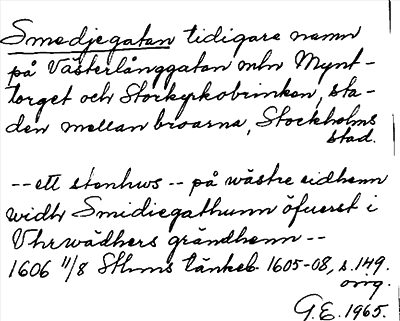 Smedjegatan tidigare namn
på Västerlånggatan mln Mynt-
torget och Storkyrkobrinken, sta-
den mellan broarna, Stockholms
stad.
-- ett stenhws -- på wästre sidhenn
widh Smidiegathunn öfuerst i
Vhrwädhers grändhenn --
1606 11/8 Sthms tänkeb. 1605-08, s. 149.
orig.
G.E. 1965.